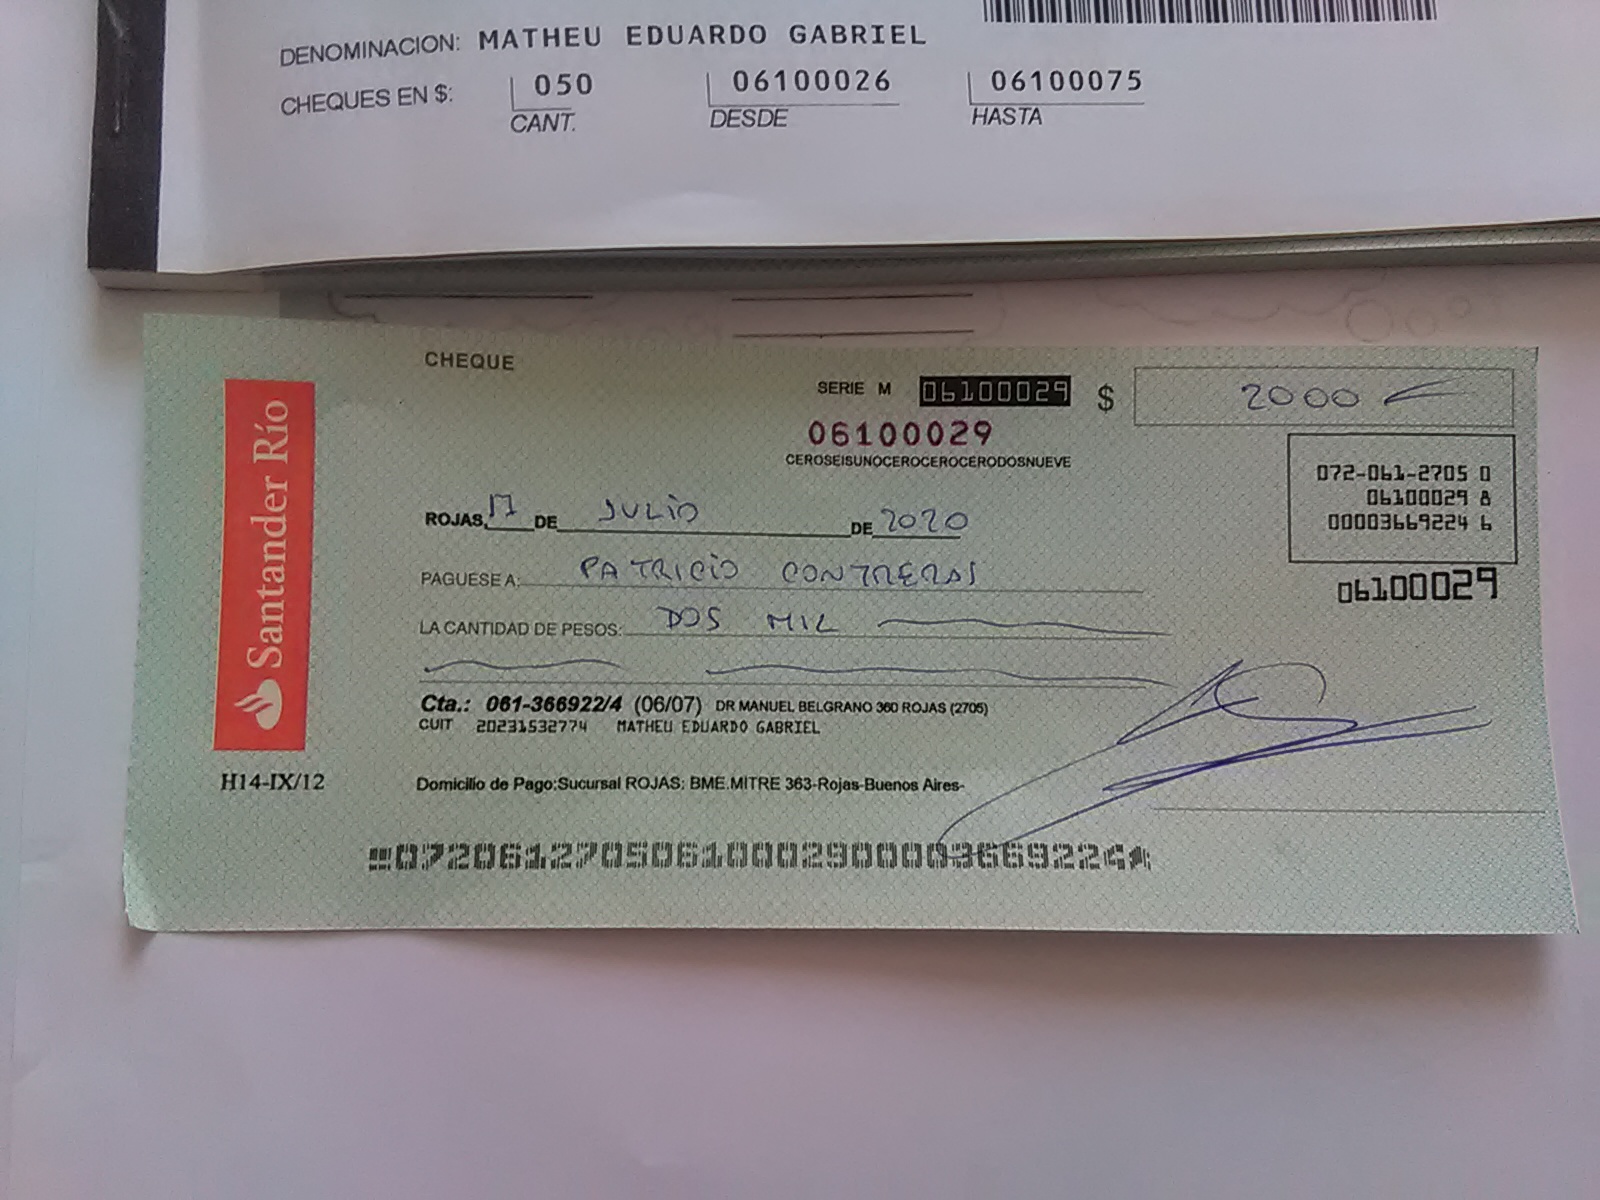 DENOMINACION: MATHEU EDUARDO GABRIEL
CHEQUES EN $: 050 06100026 06100075
CANT. DESDE HASTA
CHEQUE
SERIE M 06100029 $ 2000
06100029
CEROSEISUNOCEROCEROCERODOSNUEVE
072-061-2705 0
06100029 8
00003669224 6
06100029
Santander Río
ROJAS, 17 DE JULIO DE 2020
PAGUESE A: PATRICIO CONTRERAS
LA CANTIDAD DE PESOS: DOS MIL
Cta.: 061-366922/4 (06/07) DR MANUEL BELGRANO 360 ROJAS (2705)
CUIT 20231532774 MATHEU EDUARDO GABRIEL
H14-IX/12
Domicilio de Pago:Sucursal ROJAS: BME.MITRE 363-Rojas-Buenos Aires-
07206127050610002900003669224